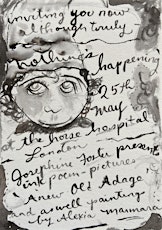 inviting you now
although truly
nothing's happening
25th of
May
at the horse hospital
London
Josephine Foster presents
ink poem-pictures
'Anew Old Adage'
and aswell paintings
by Alexia Mamara